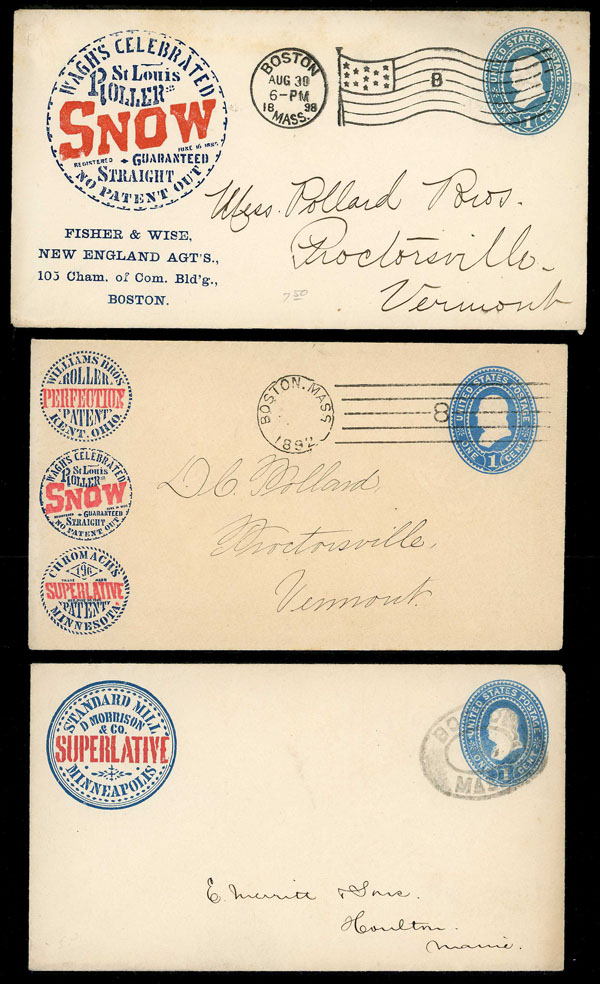 WAGH'S CELEBRATED
St Louis
ROLLER
SNOW
JUNE 16, 1885.
REGISTERED GUARANTEED
STRAIGHT
NO PATENT OUT
FISHER & WISE,
NEW ENGLAND AGT'S.,
105 Cham. of Com. Bld'g.,
BOSTON.
BOSTON
AUG 30
6-PM
18 98
MASS.
8
UNITED STATES POSTAGE
ONE 1 CENT
Mess. Pollard Bros.
Proctorsville
Vermont
7 50
WILLIAMS BROS
ROLLER
PERFECTION
PATENT
KENT, OHIO.
WAGH'S CELEBRATED
St Louis
ROLLER
SNOW
GUARANTEED
STRAIGHT
NO PATENT OUT
CHROMACH'S
196
TRADE MARK
SUPERLATIVE
PATENT
MINNESOTA.
BOSTON. MASS
1892
8
UNITED STATES POSTAGE
ONE 1 CENT
D.C. Pollard
Proctorsville,
Vermont.
STANDARD MILL
D MORRISON
& CO.
SUPERLATIVE
MINNEAPOLIS
BOSTON
MASS
UNITED STATES POSTAGE
ONE 1 CENT
E. Merritt & Sons.
Houlton.
Maine.